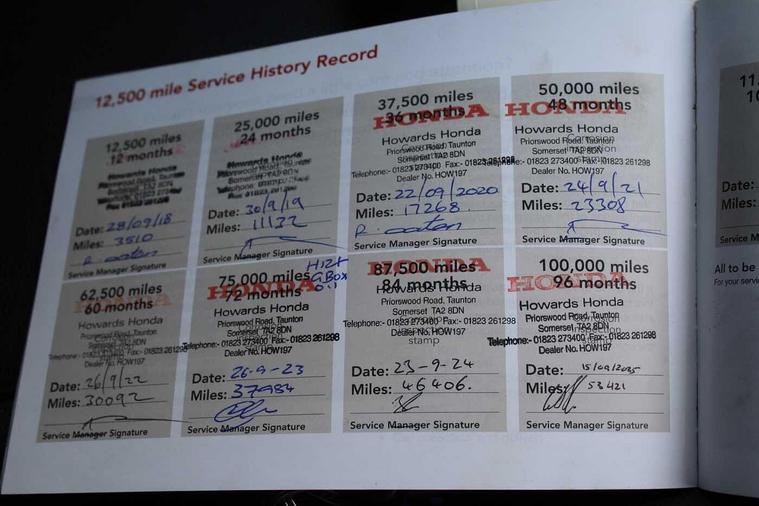 12,500 mile Service History Record
12,500 miles
12 months
Howards Honda
Date: 28/09/18
Miles: 3510
Service Manager Signature
25,000 miles
24 months
Howards Honda
Date: 30/9/19
Miles: 11132
Service Manager Signature
37,500 miles
36 months
HONDA
Howards Honda
Priorswood Road, Taunton
Somerset TA2 8DN
Telephone:- 01823 273400 Fax:- 01823 261298
Dealer No. HOW197
Date: 22/09/2020
Miles: 17268
Service Manager Signature
50,000 miles
48 months
HONDA
Howards Honda
Priorswood Road, Taunton
Somerset TA2 8DN
Telephone:- 01823 273400 Fax:- 01823 261298
Dealer No. HOW197
Date: 24/9/21
Miles: 23308
Service Manager Signature
62,500 miles
60 months
HONDA
Howards Honda
Priorswood Road, Taunton
Somerset TA2 8DN
Telephone:- 01823 273400 Fax:- 01823 261298
Dealer No. HOW197
Date: 26/9/22
Miles: 30092
Service Manager Signature
75,000 miles
72 months
HONDA
Howards Honda
Priorswood Road, Taunton
Somerset TA2 8DN
Telephone:- 01823 273400 Fax:- 01823 261298
Dealer No. HOW197
Date: 26-9-23
Miles: 37984
Service Manager Signature
87,500 miles
84 months
HONDA
Howards Honda
Priorswood Road, Taunton
Somerset TA2 8DN
Telephone:- 01823 273400 Fax:- 01823 261298
Dealer No. HOW197
stamp
Date: 23-9-24
Miles: 46406.
Service Manager Signature
100,000 miles
96 months
HONDA
Howards Honda
Priorswood Road, Taunton
Somerset TA2 8DN
Telephone:- 01823 273400 Fax:- 01823 261298
Dealer No. HOW197
Date: 15/09/2025
Miles: 53421
Service Manager Signature
Date:
Miles:
Service M
All to be
For your servi